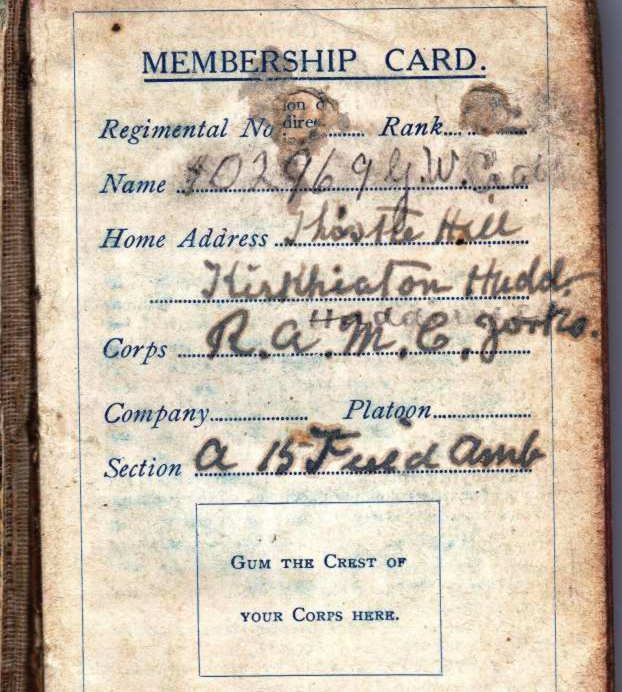 MEMBERSHIP CARD.
ion
Regimental No direc Rank
Name 102969 G.W.
Home Address Thostle Hill
Kirkheaton Hudd.
Corps R.A.M.C. Yorks.
Company Platoon
Section A 15 Field Amb
GUM THE CREST OF
YOUR CORPS HERE.